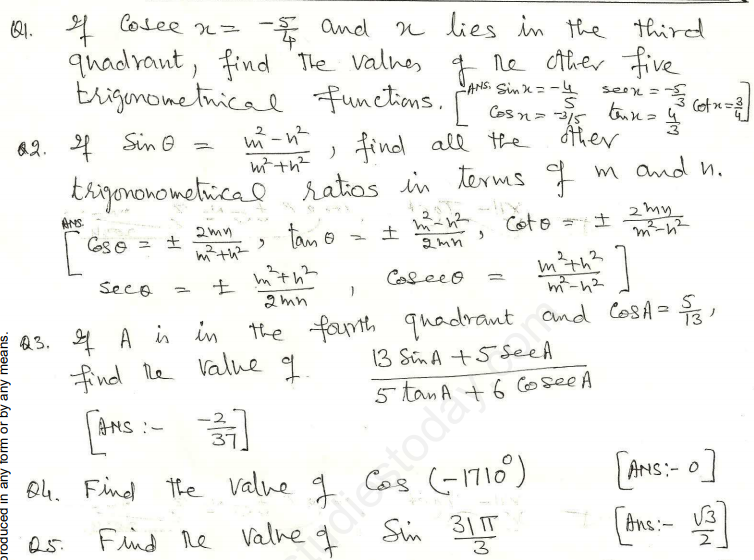 Q1. If Cosec x = -5/4 and x lies in the third
quadrant, find the values of the other five
trigonometrical functions. [ANS. Sin x = -4/5 sec x = -5/3 Cot x = 3/4]
Cos x = -3/5 tan x = 4/3
Q2. If Sin θ = m²-n²/m²+n², find all the other
trigononometrical ratios in terms of m and n.
ANS.
[Cos θ = ± 2mn/m²+n², tan θ = ± m²-n²/2mn, Cot θ = ± 2mn/m²-n²
sec θ = ± m²+n²/2mn, Cosec θ = m²+n²/m²-n²]
Q3. If A is in the fourth quadrant and Cos A = 5/13,
find the value of 13 Sin A + 5 Sec A / 5 tan A + 6 Cosec A
[ANS :- -2/37]
Q4. Find the value of Cos (-1710°) [ANS:- 0]
Q5. Find the value of Sin 31π/3 [Ans:- √3/2]
produced in any form or by any means.
studiestoday.com